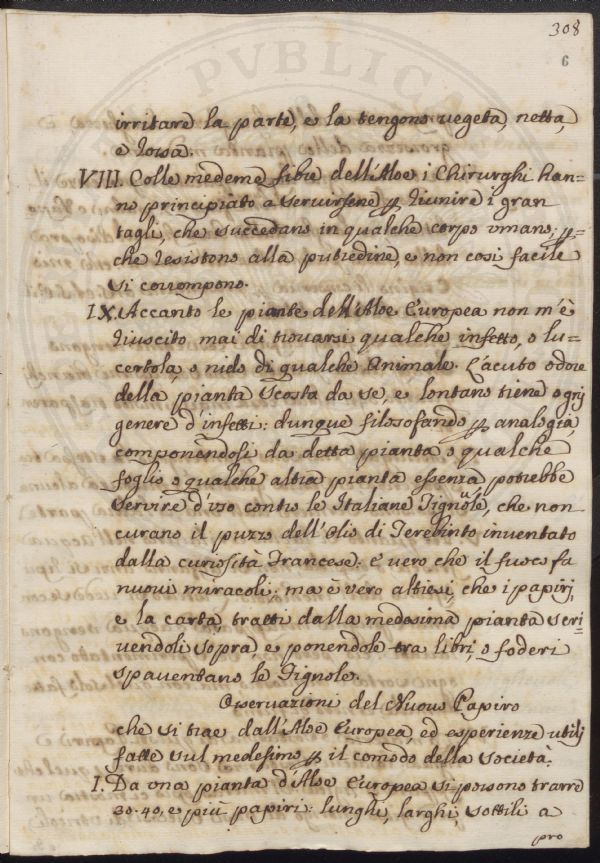 308
6
irritare la parte, e la tengono vegeta, netta,
e rossa.
VIII. Colle medeme fibre dell'Aloe i Chirurghi han=
no principiato a servirsene p riunire i gran
tagli, che succedano in qualche corpo umano; p=
che resistono alla putredine, e non così facile
si corrompono.
IX. Accanto le piante dell'Aloe Europea non m'è
riuscito mai di trovarsi qualche insetto, o lu=
certola, o nido di qualche Animale. L'acuto odore
della pianta scosta da se, e lontano tiene ogni
genere d'insetti: dunque filosofando p analogia,
componendosi da detta pianta o qualche
foglio o qualche altra pianta essenza potrebbe
servire d'uso contro le Italiane Tignole, che non
curano il puzzo dell'Olio di Terebinto inventato
dalla curiosità Francese. è vero che il fuoco fa
nuovi miracoli; ma è vero altresì, che i papirj,
e la carta, tratti dalla medesima pianta scri=
vendoli sopra, e ponendole tra libri, o foderi
spaventano le Tignole.
Osservazioni del Nuovo Papiro
che si trae dall'Aloe Europea, ed esperienze utilj
fatte sul medesimo p il comodo della società.
I. Da una pianta d'Aloe Europea si possono trarre
30. 40. e più papiri: lunghi, larghi, sottili a
pro